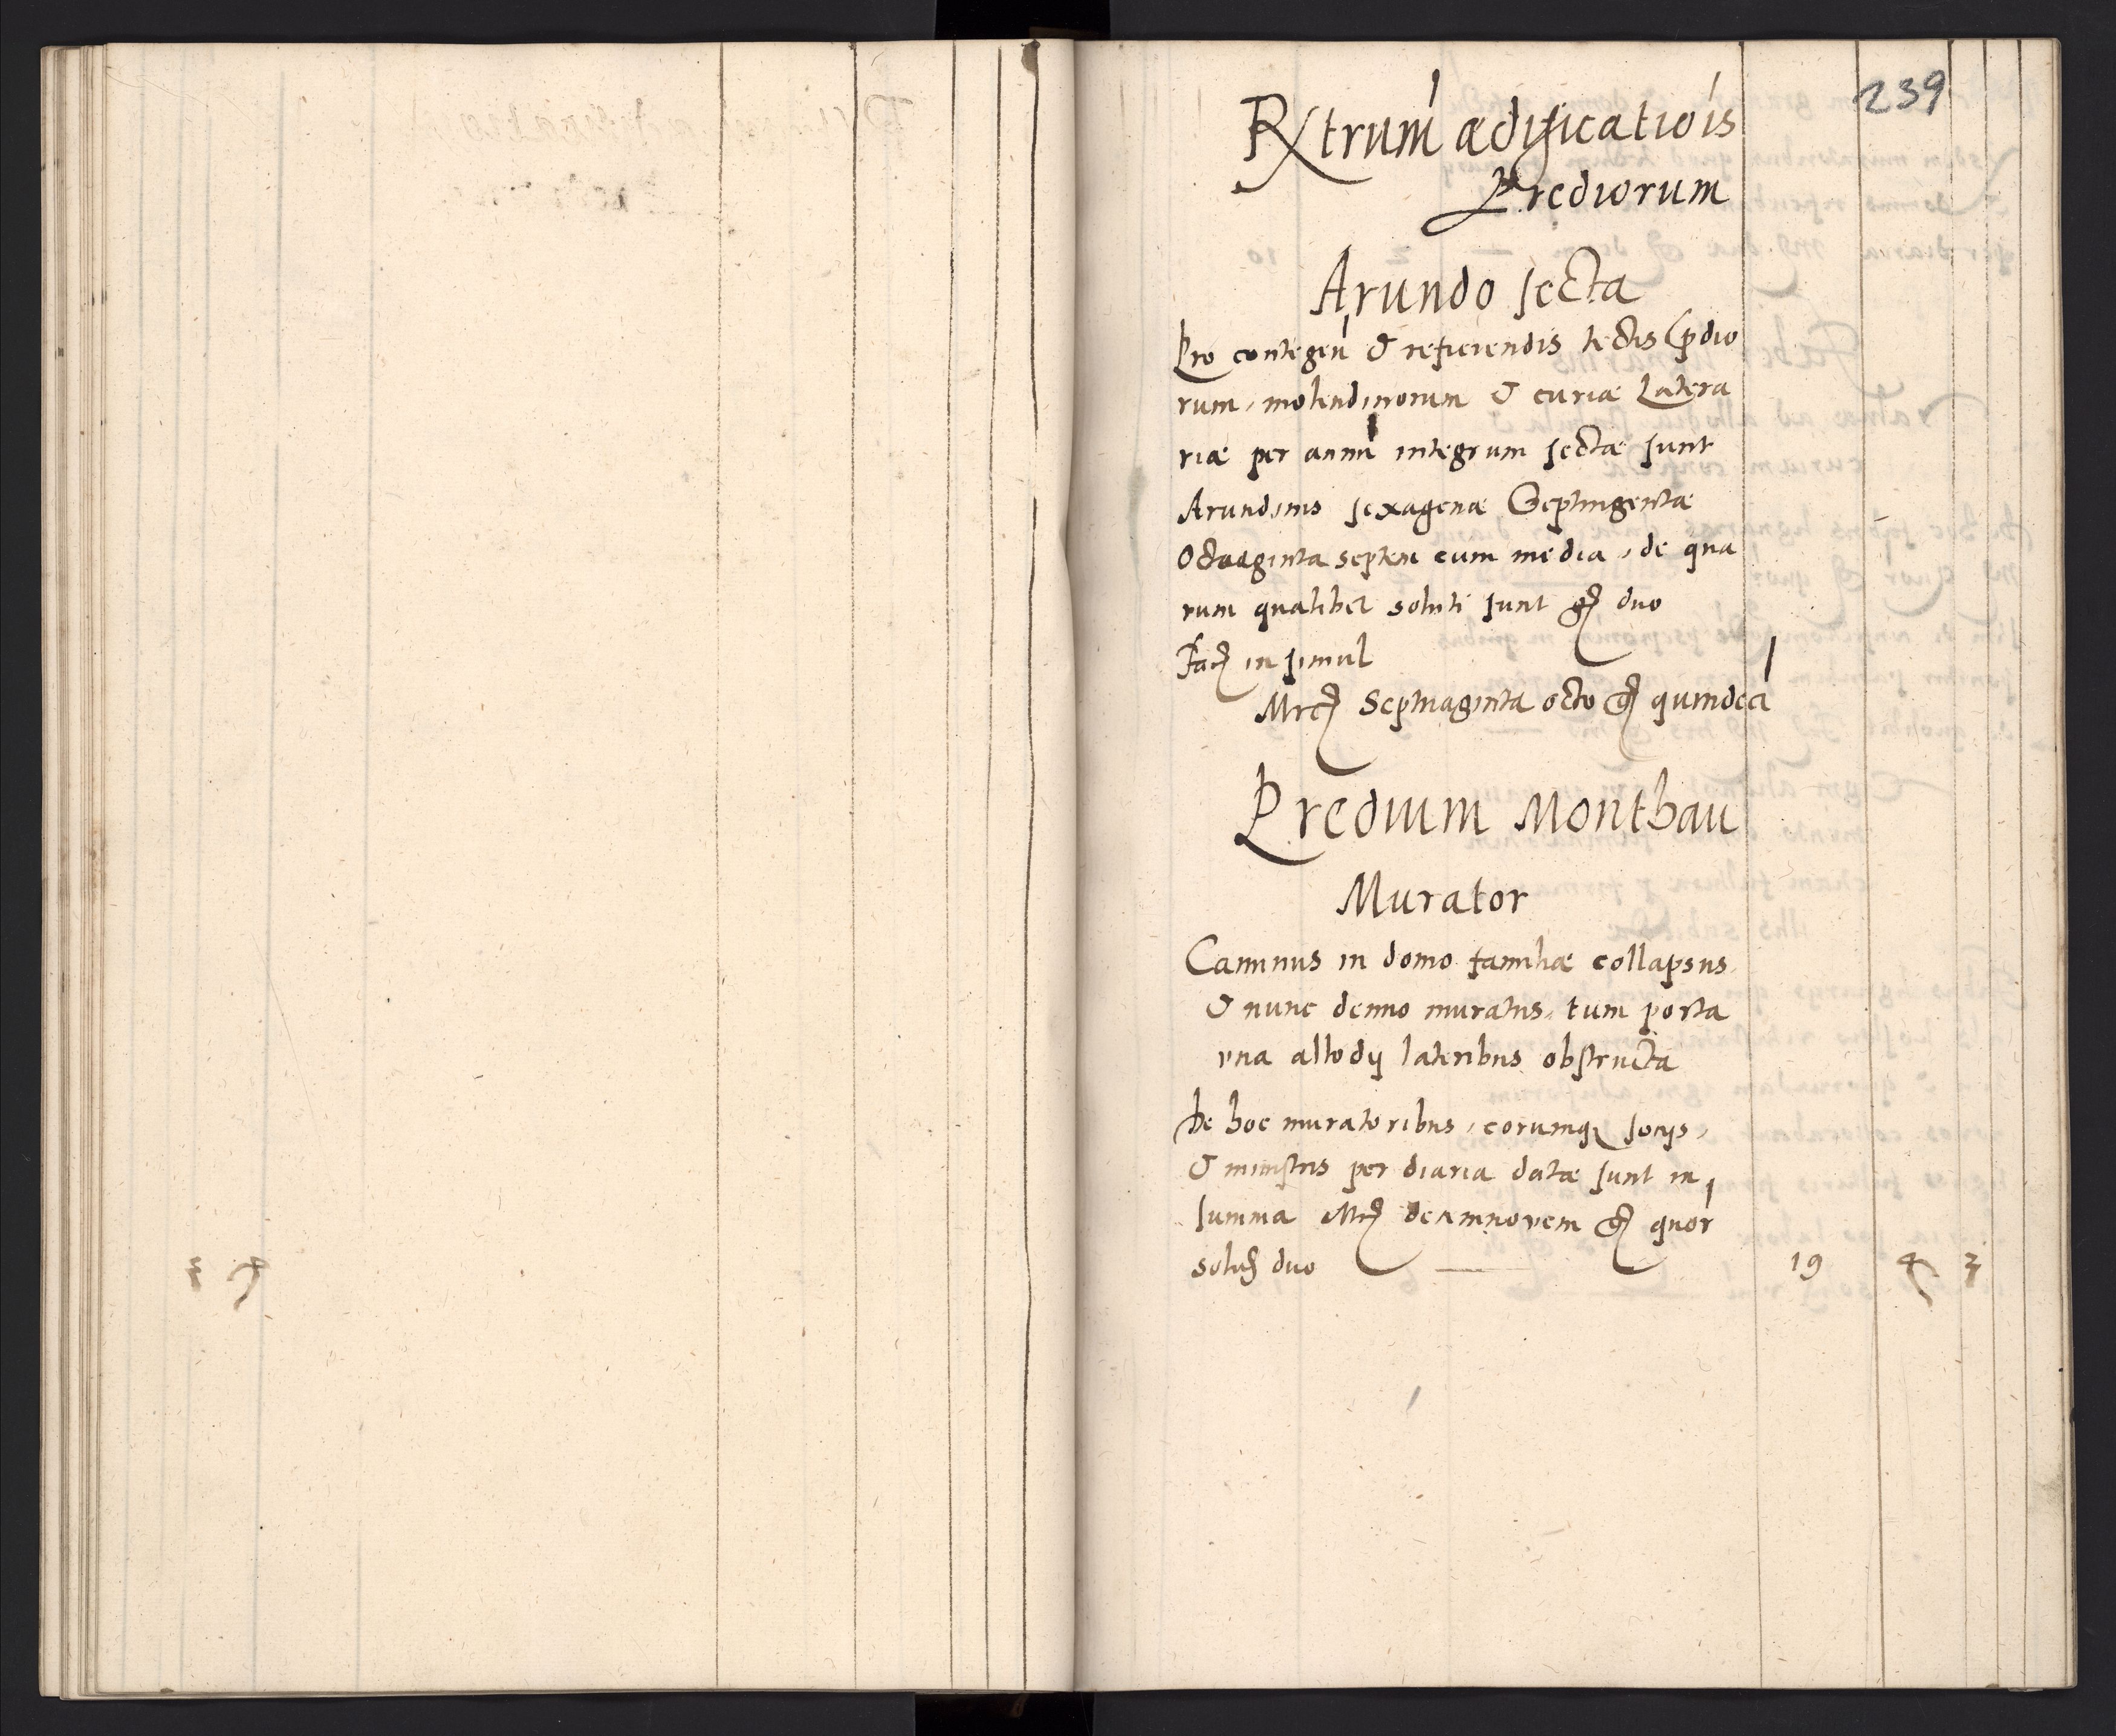 239
Rxtrum̄ ædificatiōis
Prediorum
Arundo secta
Pro contegen̄ & reficiendis tectis p̄dio
rum, molendinorum & curiæ Latera
riæ per annū integrum sectæ sunt
Arundinis sexagenæ Septingentæ
Octuaginta septem cum media, de qua
rum qualibet soluti sunt gr duo
Fac in simul
Mrc Septuaginta octo gr quindecī
Predium Monthau
Murator
Caminus in domo familiæ collapsus
& nunc denuo muratus, tum porta
vna allodij lateribus obstructa
De hoc muratoribus, eorumq socijs,
& ministris per diaria datæ sunt in
summa Mrc decimnovem gr quor̄
solid duo — 19 4